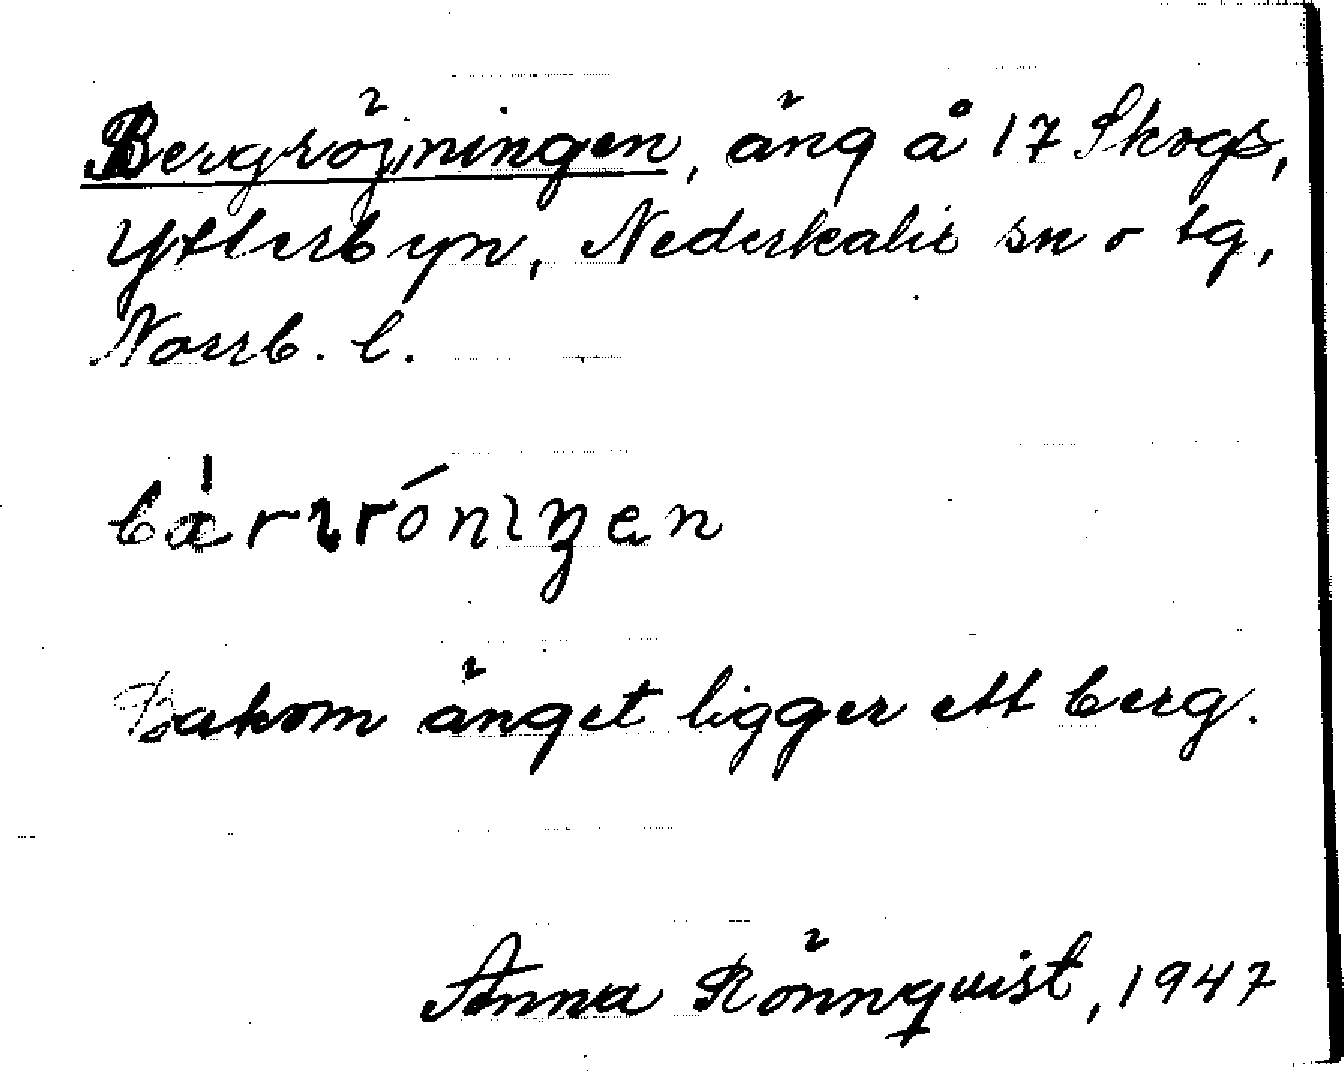 Bergröjningen, äng å 17 Skogs,
Ytterbyn, Nederkalix sn o tg,
Norrb. l.
Bakom änget ligger ett berg.
Anna Rönnquist, 1947